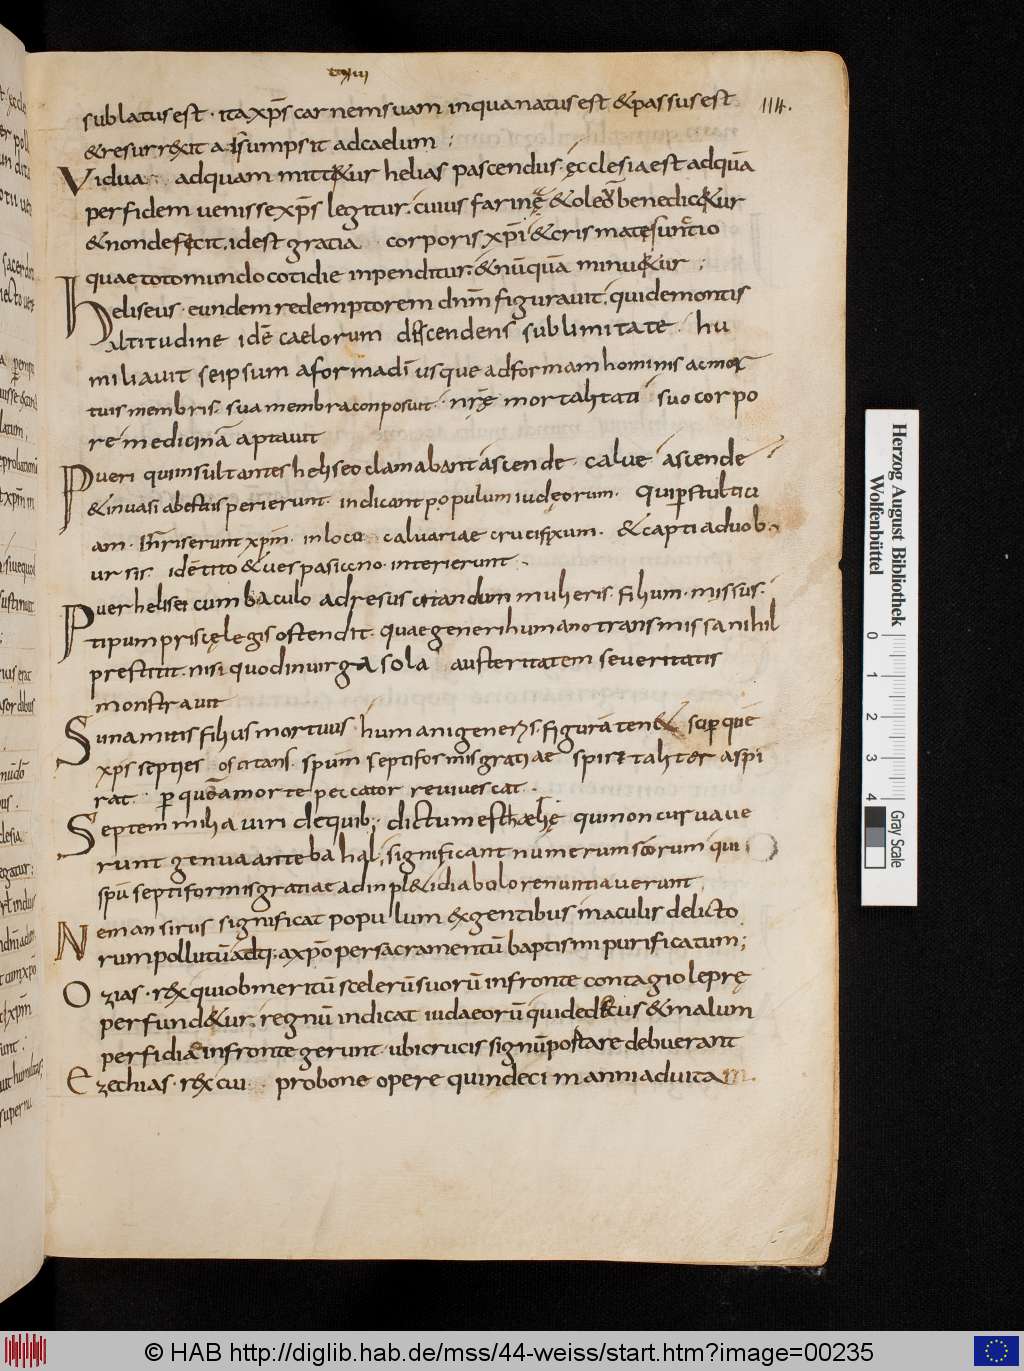 cxiiii
114.
sublatus est · ita xp̄s carnem suam in qua natus est & passus est
& resurrexit adsumpsit ad caelum ;
Vidua · ad quam mitt&ur helias pascendus · ęcclesia est ad quā
per fidem uenisse xp̄s legitur · cuius farinę & oleo benedic&ur
& non defecit · id est gratia · corporis xp̄i & crismatę
quae toto mundo cotidie inpenditur · & nūquā minu&ur ;
Heliseus · eundem redemptorem dn̄m figurauit · qui de montis
altitudine idē caelorum discendens sublimitate · hu
miliauit se ipsum a forma dī usque ad formam hominis ac mor
tuis membris · sua membra conposuit · nr̄ę mortalitati suo corpo
re medicinā aptauit
Pueri qui insultantes heliseo clamabant ascende calue ascende
& inuasi a bestiis perierunt · indicant populum iudęorum · qui p stultici
am · inriserunt xp̄m · in loco caluariae crucifixum · & capti a duob·
ursis · idē tito & uespasiano · interierunt ·
Puer helisei cum baculo ad resuscitandum mulieris filium · missus ·
tipum priscę legis ostendit · quae generi humano transmissa nihil
prestitit · nisi quod in uirga sola austeritatem seueritatis
monstrauit
Sunamitis filius mortuus · humani generis · figurā ten& · sup que
xp̄s septies oscitans · spūm septiformis gratiae spiritaliter aspi
rat · p quē a morte peccator reuiuescat ·
Septem milia uiri de quib; dictum est helię qui non curuaue
runt genua ante bahal, significant numerum sc̄orum qui
spū septiformis gratiae adinpl& i diabolo renuntiauerunt
Neman sirus significat populum ex gentibus maculis delicto
rum pollutū · a xp̄o per sacramentū baptismi purificatum;
Ozias · rex qui ob meritū scelerū suorū in fronte contagio leprę
perfund&ur · regnū indicat iudaeorū qui dedecus & malum
perfidiae in fronte gerunt · ubi crucis signū portare debuerant
Ezechias · rex cui pro bone opere quindecim anni ad uitam
Herzog August Bibliothek
Wolfenbüttel
0 1 2 3 4
Gray Scale
© HAB http://diglib.hab.de/mss/44-weiss/start.htm?image=00235